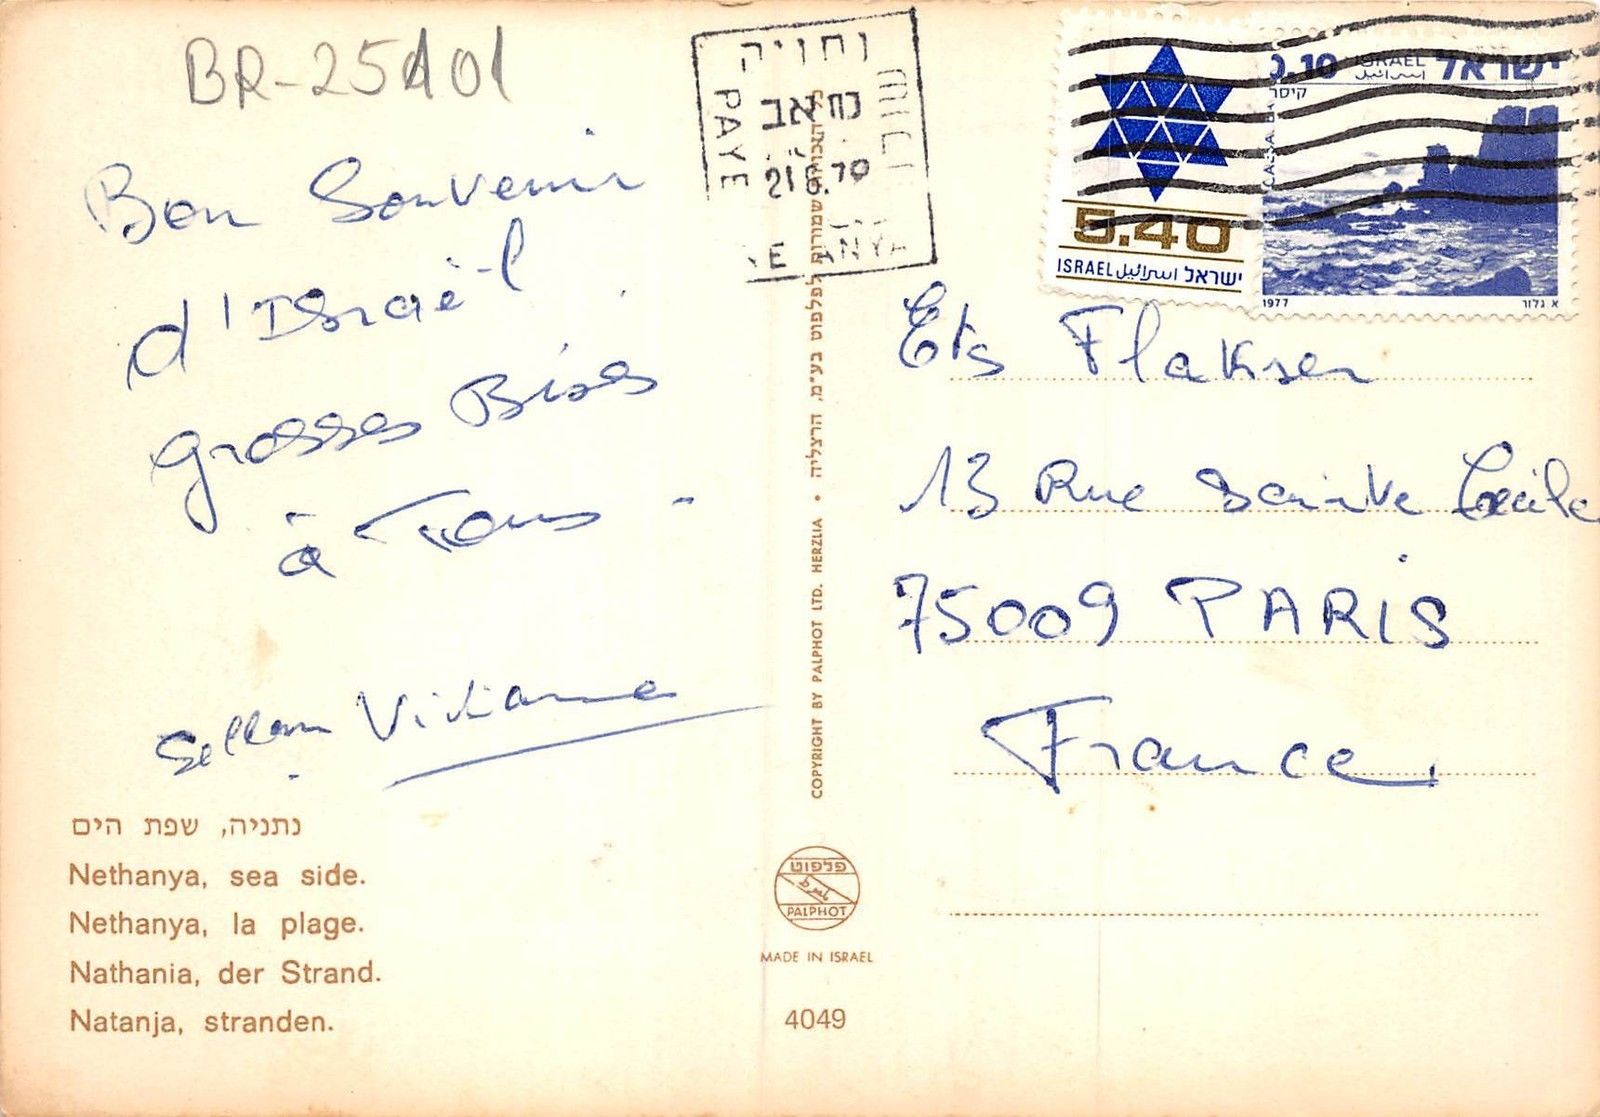 BR-25401
Bon Souvenir
d'Israël
grosses Bises
à Tous -
Sellam Viviane
נתניה, שפת הים
Nethanya, sea side.
Nethanya, la plage.
Nathania, der Strand.
Natanja, stranden.
PAYE
COPYRIGHT BY PALPHOT LTD. HERZLIA • שמורות לפלפוט בע"מ, הרצליה
פלפוט
PALPHOT
MADE IN ISRAEL
4049
5.40
ISRAEL اسرائيل ישראל
0.10 ISRAEL اسرائيل ישראל
1977 א גלזר
Ets Flakser
13 Rue Sainte Cécile
75009 PARIS
France